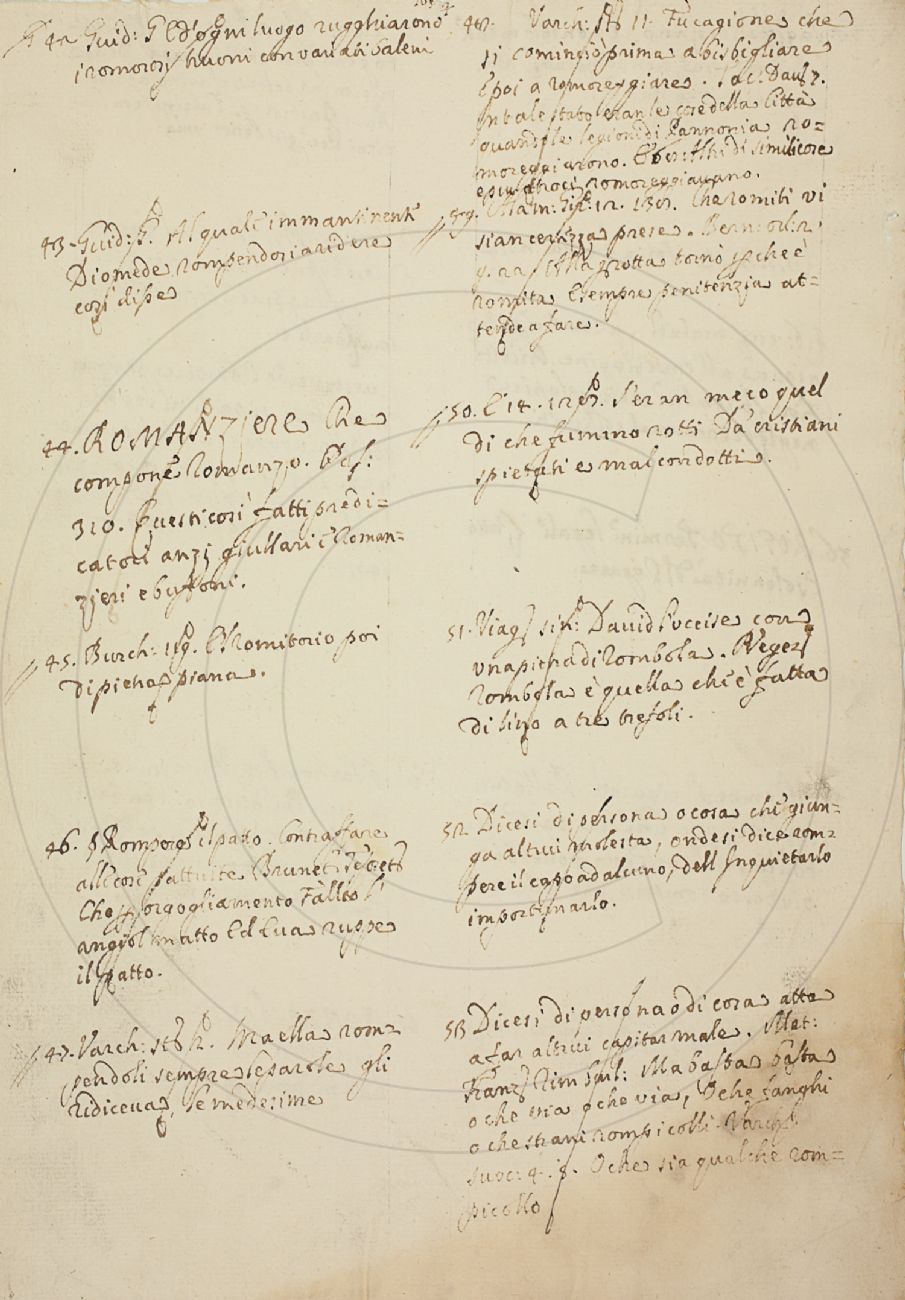 42. Guid: G. Ed ogni luogo rugghiarono
i romorosi tuoni con vari ati baleni
43. Guid: G. Al quale immantinente
Diomede rompendosi a ridere
così disse
44. ROMANZIERE Che
compone Romanzo. Pass:
310. Questi così fatti predi=
catori anzi giullari e Roman=
zieri e buffoni.
45. Burch: Il Romitorio poi
di pietra piana.
46. § Romper il patto. Contraffare
alle cose pattuite Brunet: Tesorett
Che per orgogliamento Fallio l'
angiol matto Ed Eva ruppe
il patto.
47. Varch: st: Ma ella rom=
pendoli sempre le parole gli
ridiceva, le medesime
48. Varch: st: 11. Fu cagione che
si cominciò prima a bisbigliare
e poi a romoreggiare. Tac: Dav:
In tale stato eran le cose della Città
quando le legioni di Pannonia ro=
moreggiarono. E Di simili cose
e più atroci romoreggiavano.
49. Alam: Gir: 12. 130. Che romiti vi
sian certezza prese. Bern: orl: 2
Alla grotta tornò perche è
romita E sempre penitenzia at=
tende a fare.
50. E 14. S'eran meco quel
dì che fummo rotti Da' cristiani
spietati e mal condotti.
51. Viag: sin: David l'uccise con
una pietra di Rombola.
Rombola è quella ch'è fatta
di lino a tre trefoli.
52. Dicesi di persona o cosa che giun=
ga altrui molesta, onde si dice rom=
pere il capo ad alcuno, dell' Inquietarlo
importunarlo.
53 Dicesi di persona o di cosa atta
a far altrui capitar male. Mat:
Franz: Rim burl: Ma basta basta
o che via o che via, O che fanghi
o che strani rompicolli. Varch:
suoc: 4. O che sia qualche rom=
picollo